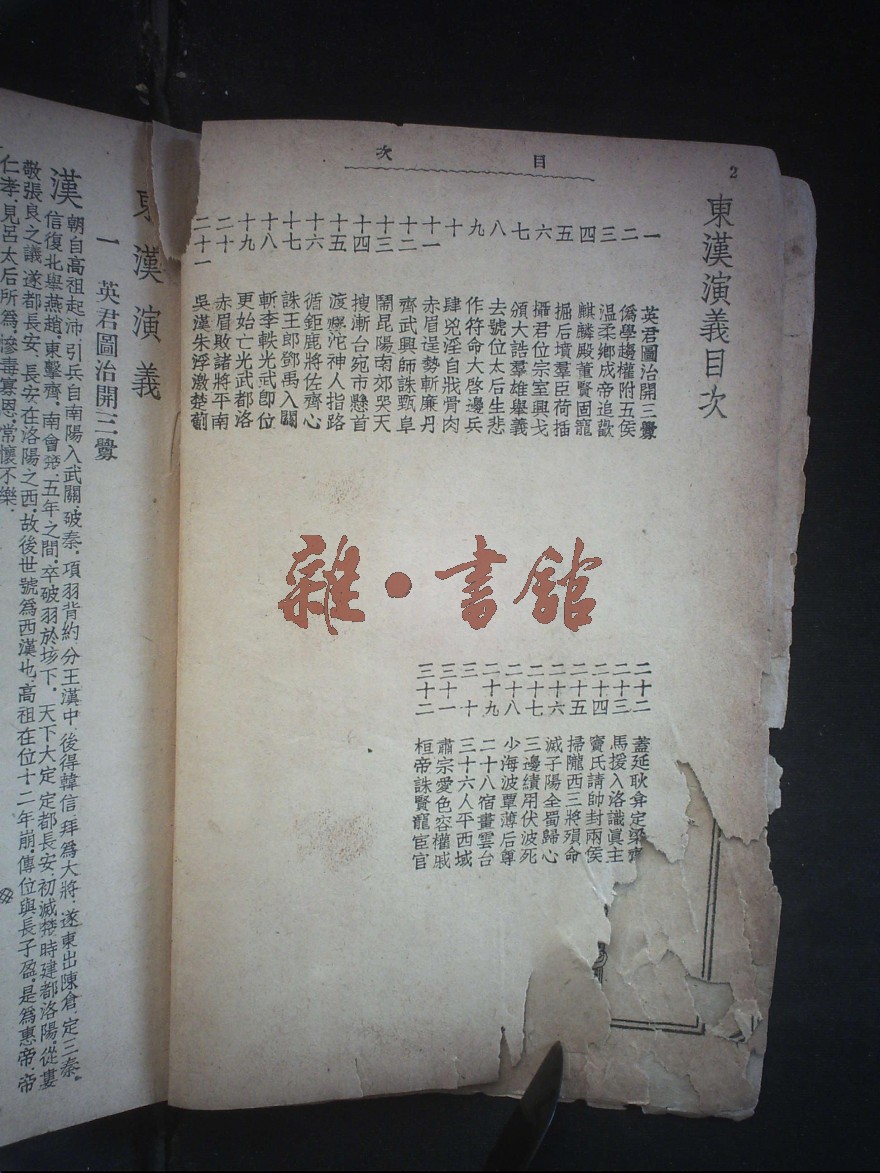 2
目次
東漢演義目次
一 英君圖治開三釁
二 僞學趨權附五侯
三 溫柔鄉成帝追歡
四 麒麟殿董賢固寵
五 掘后墳羣臣荷插
六 攝君位宗室興戈
七 頒大誥羣雄舉義
八 去號位太后生悲
九 作符命大啓邊兵
十 肆兇淫自戕骨肉
十一 赤眉逞勢斬廉丹
十二 齊武興師誅甄阜
十三 鬧昆陽南郊哭天
十四 搜漸台宛市懸首
十五 渡滹沱神人指路
十六 循鉅鹿將佐齊心
十七 誅王郎鄧禹入關
十八 斬李軼光武卽位
十九 更始亡光武都洛
二十 赤眉敗諸將平南
二十一 吳漢朱浮激楚薊
二十二 蓋延耿弇定梁齊
二十三 馬援入洛識眞主
二十四 竇氏請帥封兩侯
二十五 掃隴西三將殞命
二十六 滅子陽全蜀歸心
二十七 三邊績用伏波死
二十八 少海波覃薄后尊
二十九 二十八宿畫雲台
三十 三十六人平西域
三十一 肅宗愛色容權戚
三十二 桓帝誅賢寵宦官
雜·書館
東漢演義
一 英君圖治開三釁
漢朝自高祖起沛，引兵自南陽入武關，破秦，項羽背約，分王漢中，後得韓信，拜爲大將，遂東出陳倉，定三秦，
信復北舉燕趙，東擊齊，南會楚，五年之間，卒破羽於垓下，天下大定，定都長安，初滅楚時建都洛陽，從婁
敬張良之議，遂都長安，長安在洛陽之西，故後世號爲西漢也，高祖在位十二年崩，傳位與長子盈，是爲惠帝，帝
仁孝，見呂太后所爲，慘毒寡恩，常懷不樂，